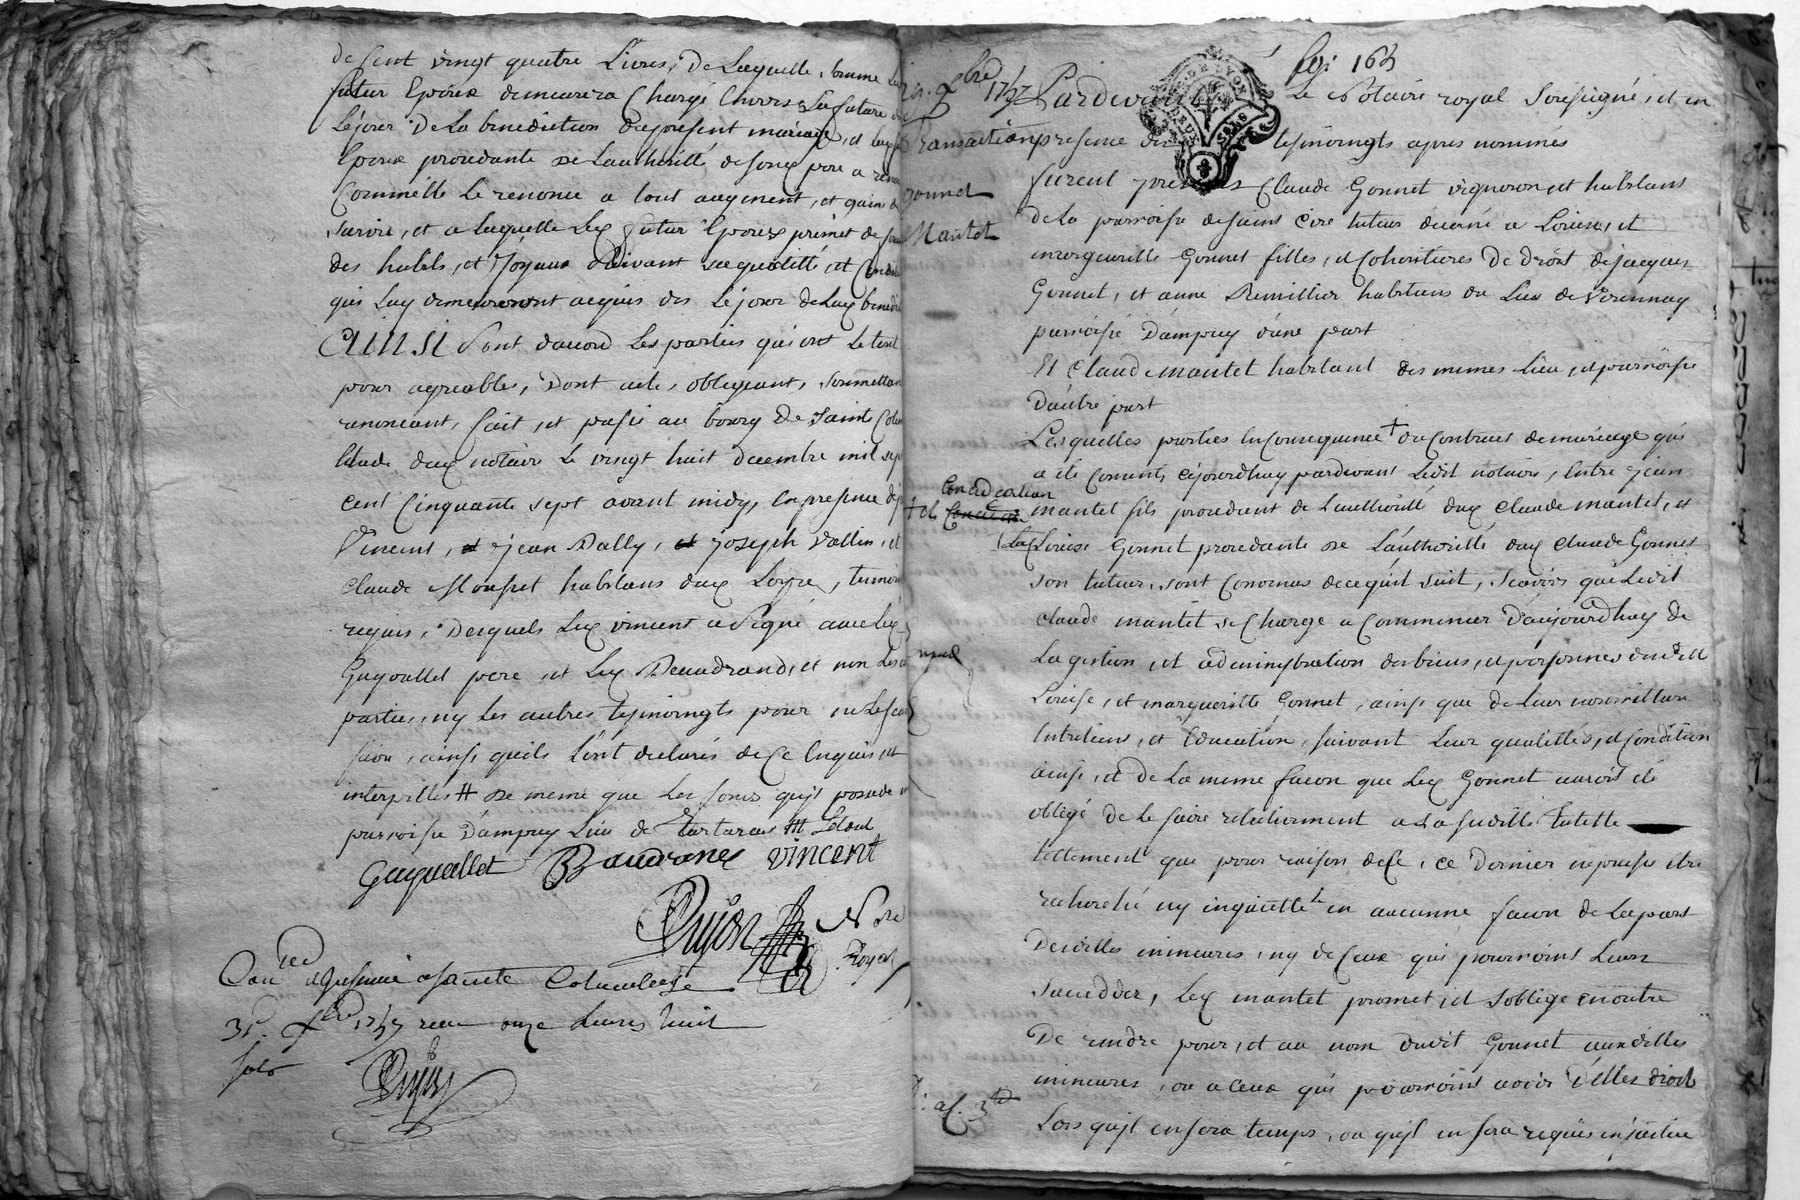 de cent vingt quatre Livres, De Laquelle somme
futur Epoux demeurera Chargé Envers La future
Le jour De La benediction du present mariage, et
Epouse procedante De Lauthorité de son pere a
Commelle Le renonce a tout augment, et gain de
survie, et a Laquelle Led futur Epoux promet de
des habits, et Joyaux Suivant sa qualitté, et
qui Luy demeureront acquis dès Le jour de Lad
AINSI Sont d'accord Les parties qui ont Le tout
pour agreables, Dont acte, obligeant, soumettant
renonceant, fait, et passé au bourg De Saint
Etude dud notaire Le vingt huit decembre mil sept
cent Cinquante sept avant midy, En presence de
Vincent, et jean Dally, et joseph Vallin, et
Claude Monfret habitans dud Loyre, temoins
requis, Desquels Led vincent a Signé avec Led
Gayvallet pere, et Led Beaudrand, et non Les
parties, ny Les autres tesmoingts pour ne Le
savoir, ainsi qu'ils L'ont declarés de Ce Enquis, et
interpellés # De meme que Les fonds qu'il possede
parroisse D'ampuy Lieu de Tartaras
Gayvallet Baudrand vincent
Dujon Nore
Royal
Con acte a Sainte Colombe Le
31e Xbre 1757 receu onze Livres huit
sols
Dujon
Xbre 1757
foj: 163
Pardevant Le Notaire royal Soussigné, et en
Transaction
presence des tesmoingts apres nommés
gonnet
Mantet
furent presents Claude Gonnet vigneron, et habitans
De La parroisse de saint Cire tuteur decerné a Loüise, et
margueritte Gonnet filles, et Cohoritieres De droit de jacques
Gonnet, et anne Remillier habitans du Lieu de Verennay
parroisse D'ampuy d'une part
Et Claude mantet habitant des memes Lieu, et parroisse
D'autre part
Lesquelles parties En Consequence + du Contract de mariage qui
a été Consenti cejourdhuy pardevant Ledit notaire, Entre jean
Consideration
+ et
mantet fils procedant de Lauthorité dud Claude mantet, et
Lad
Loüise Gonnet procedante De L'authorité dud Claude Gonnet
son tuteur, sont Convenus de ce qui suit, scavoir que Ledit
Claude mantet se Charge a Commencer D'aujourdhuy de
La gestion, et administration des biens, et personnes
Loüise, et marguerite Gonnet, ainsi que de Leur nourriture
Entretiens, et Education, suivant Leur qualittés, et Condition
ainsi, et de La meme façon que Led Gonnet auroit été
obligé De Le faire relativement a La Suditte Tutelle
tellement que pour raison de Ce, ce Dernier ne puisse etre
recherché ny inquietté en aucunne façon de La part
Desdittes mineures, ny de Ceux qui pourroient Leur
succedder, Led mantet promet, et s'oblige en outre
De rendre pour, et au nom dudit Gonnet auxdittes
mineures, ou a Ceux qui pourroient avoir D'elles droit
Lors qu'il en sera temps, ou qu'il en sera requis en justice